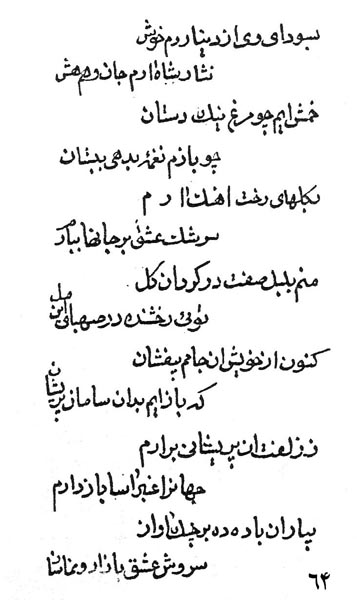 بسودای وی از دینار رم خوش
نثار شاه ارم جان و هم هش
خمش ایم چو مرغ نیک دستان
چو بازم نغمه بدهی بستان
بکلهای رخت اهنک ارم
سرشک عشق بر جانها ببارم
منم بلبل صفت در کردان کل
توئی رخشنده در صهبای این مل
کنون از خویش ان جامم بفشان
که باز ایم بدان سامان پریشان
ز زلفت ان پریشانی برارم
جهانرا عنبر اسا باز دارم
بیاران باده ده بر چنک اواز
سروش عشق باز او
۶۴